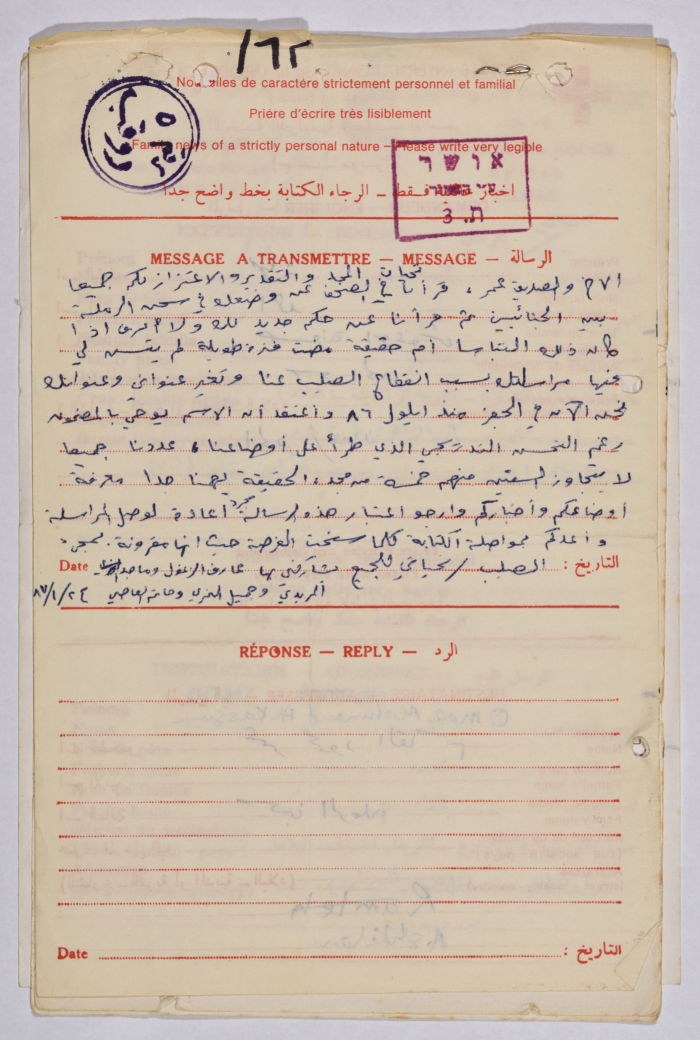 /٦٢
Nouvelles de caractére strictement personnel et familial
Priére d'écrire très lisiblement
Family news of a strictly personal nature – Please write very legible
اخبار عائلية فقط – الرجاء الكتابة بخط واضح جداً
אושר
ת.3
MESSAGE A TRANSMETTRE – MESSAGE – الرسالة
الأخ والصديق عمر، تحيات المجد والتقدير والاعتزاز بكم جميعا
قرأنا في الصحف عن وضعك في سجن الرملة
بين الجنائيين ثم قرأنا عن حكم جديد لك ولا أعرف اذا
كان ذلك التباسا أم حقيقة مضت فترة طويلة لم يتسن لي
فيها مراسلتك بسبب انقطاع الصليب عنا وتغير عنواني وعنوانك
نحن الآن في منذ ايلول ٨٦ وأعتقد أن الاسم يوحي بالمضمون
رغم التحسن التدريجي الذي طرأ على أوضاعنا، عددنا جميعا
لا يتجاوز الستين منهم خمسة من الحقيقة يهمنا جدا معرفة
أوضاعكم وأخباركم وارجو اعتبار هذه الرسالة مجرد اعادة لوصل المراسلة
وأعدكم بمواصلة الكتابة كلما سنحت الفرصة حيث انها مقرونة
Date الصليب / تحياتي للجميع يشاركني بها عارف الزغلول وماجد التاريخ :
وجميل وحاتم ٨٧/١/٢٤
RÉPONSE – REPLY – الرد
Date التاريخ :